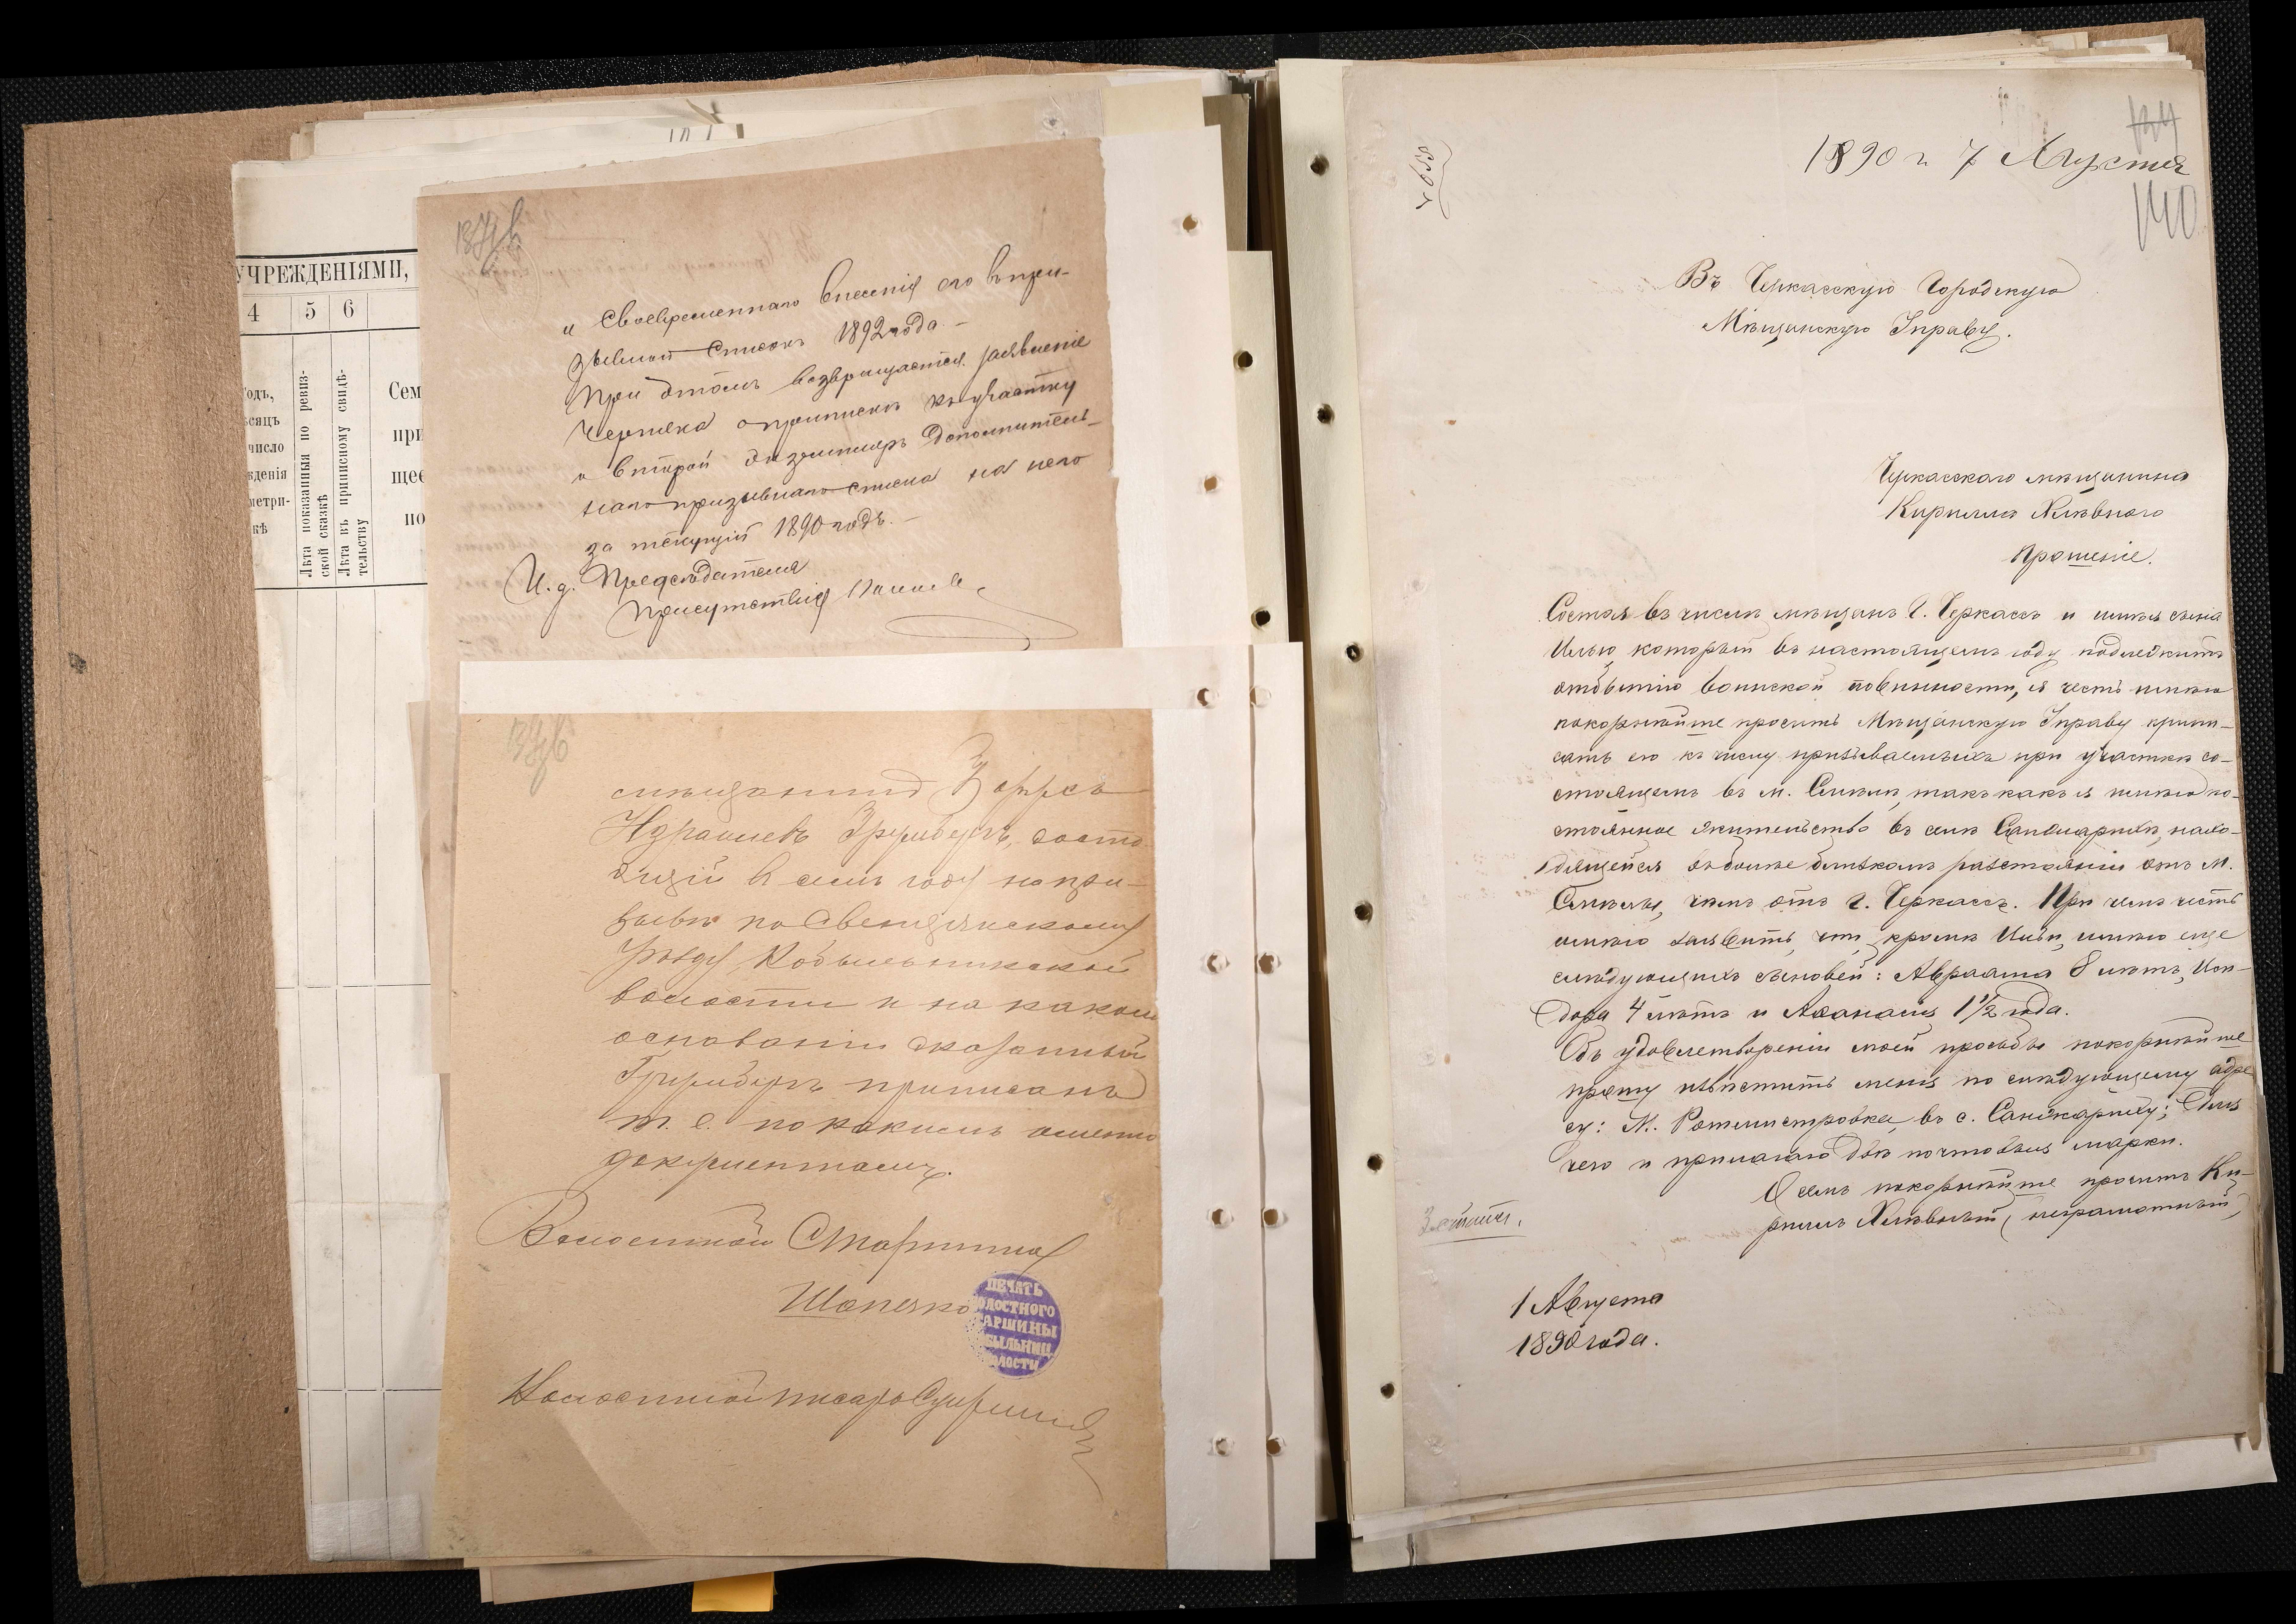 УЧРЕЖДЕНІЯМИ,
4 5 6
Лѣта показанныя по ревиз-
ской сказкѣ
Лѣта въ приписному свидѣ-
тельству
и своевременнаго внесенія его въ при-
зывной списокъ 1892 года. —
При этомъ возвращается заявленіе
Черняка о припискѣ къ участку
и второй экземпляръ дополнитель-
наго призывнаго списка на него
за текущій 1890 годъ. —
И. д. Предсѣдателя
Присутствія
мѣщанинъ
Израилевъ состо
ящій въ семъ году на при-
зывѣ по Свенцянскому
уѣзду, Кобыльникской
волости и на какомъ
основаніи сказанный
приписанъ
т. е. по какимъ именно
документамъ.
Волостной Старшина
ПЕЧАТЬ
ОЛОСТНОГО
АРШИНЫ
БЫЛЬНИЦ
ЛОСТИ
Волостной писарь
1890 г. 7 Августа
140
Въ Черкасскую Городскую
Мѣщанскую Управу.
Черкасскаго мѣщанина
Кирилла Хлѣвного
Прошеніе.
Состоя въ числѣ мѣщанъ г. Черкассъ и имѣя сына
Илью, который въ настоящемъ году подлежитъ
отбытію воинской повинности, я честь имѣю
покорнѣйше просить Мѣщанскую Управу припи-
сать его къ числу призываемыхъ при участкѣ со-
стоящемъ въ м. Смѣлѣ, такъ какъ я имѣю по-
стоянное жительство въ селѣ Санжарихѣ, нахо-
дящейся въ болѣе близкомъ разстояніи отъ м.
Смѣлы, чѣмъ отъ г. Черкассъ. При чемъ честь
имѣю заявить, что, кромѣ Ильи, имѣю еще
слѣдующихъ сыновей: Авраама 8 лѣтъ, Иси-
дора 4 лѣтъ и Аѳанасія 1 1/2 года.
Объ удовлетвореніи моей просьбы покорнѣйше
прошу извѣстить меня по слѣдующему адре
су: М. Ротмистровка, въ с. Санжариху; для
чего и прилагаю двѣ почтовыя марки.
О семъ покорнѣйше проситъ Ки-
риллъ Хлѣвный, неграмотный,
1 Августа
1890 года.